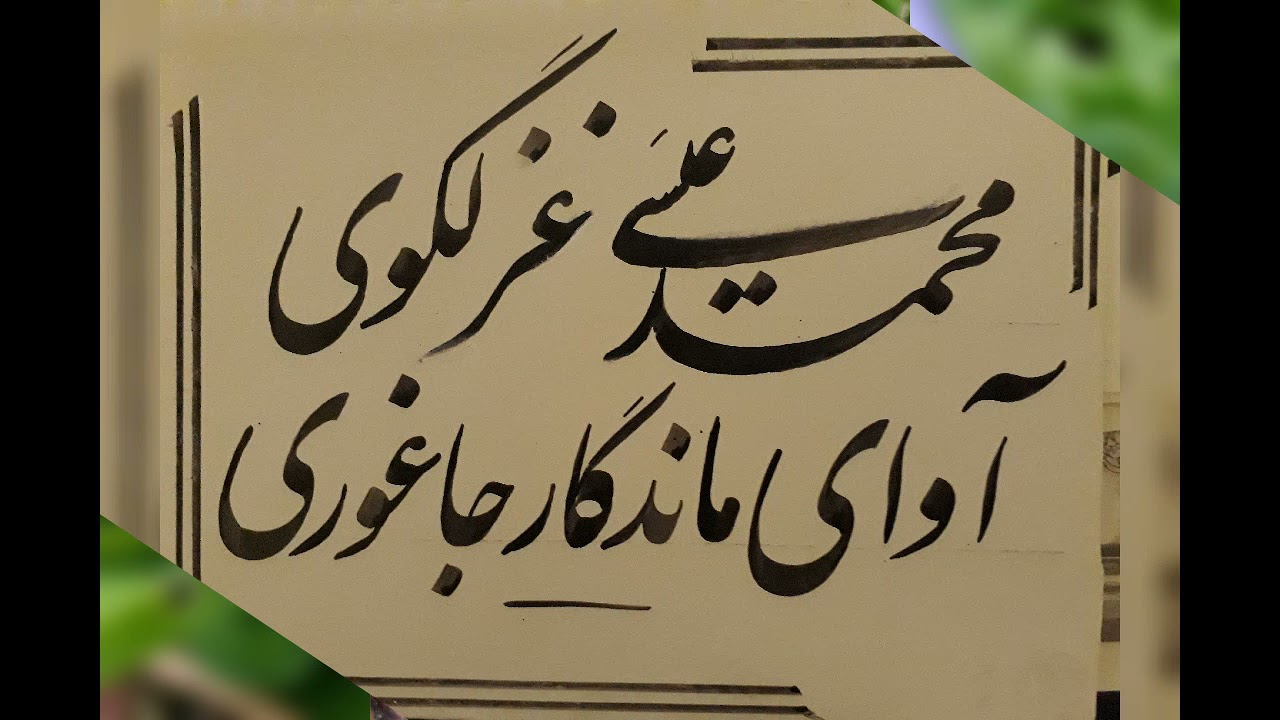 محمد عیسی غزلگوی
آوای ماندگار جاغوری